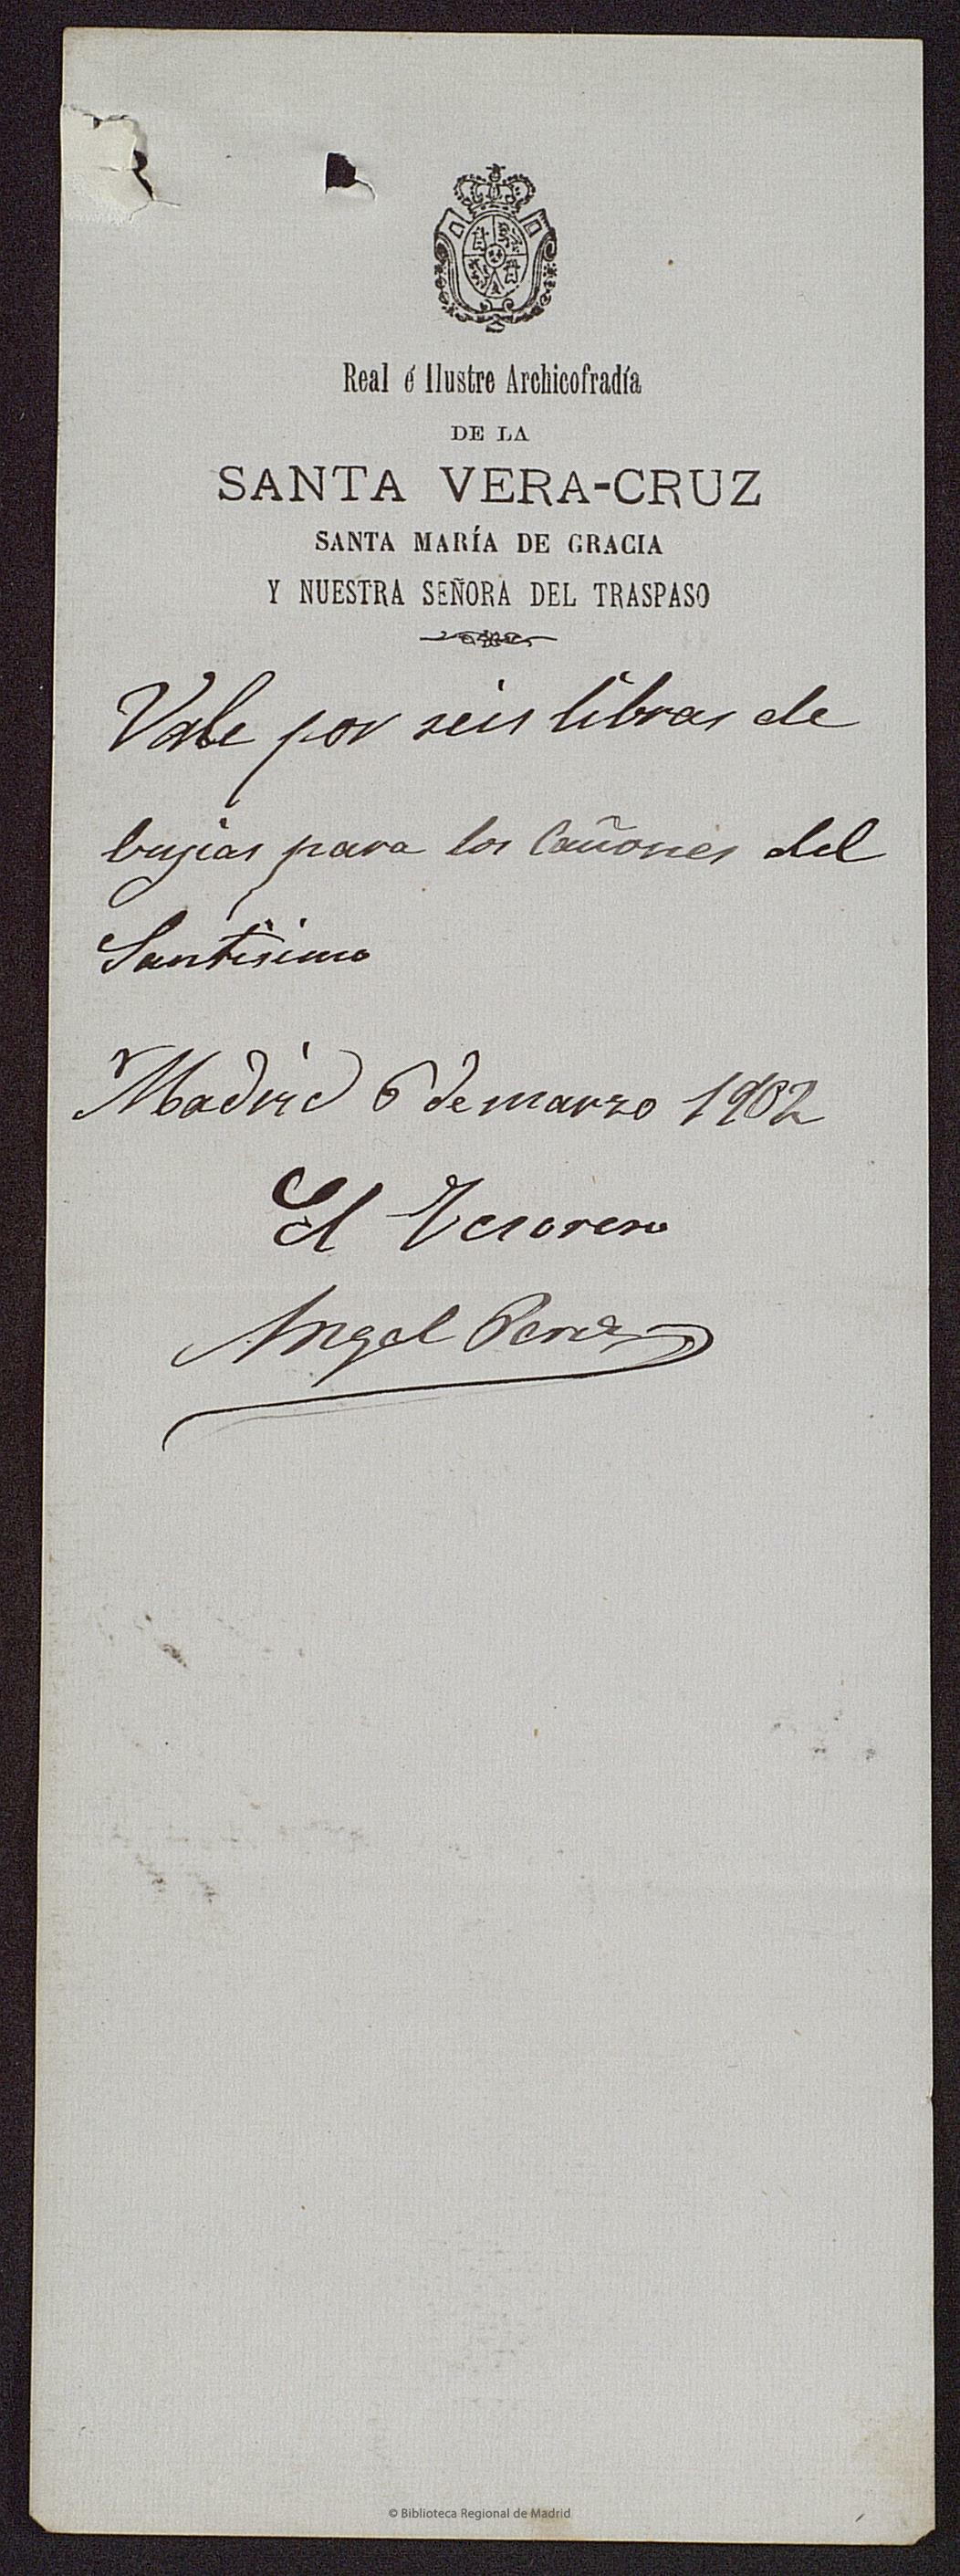 Real é Ilustre Archicofradía
DE LA
SANTA VERA-CRUZ
SANTA MARÍA DE GRACIA
Y NUESTRA SEÑORA DEL TRASPASO
Vale por seis libras de
bujias para los Cañones del
Santisimo
Madrid 6 de marzo 1902
El Tesorero
Angel Perez
© Biblioteca Regional de Madrid